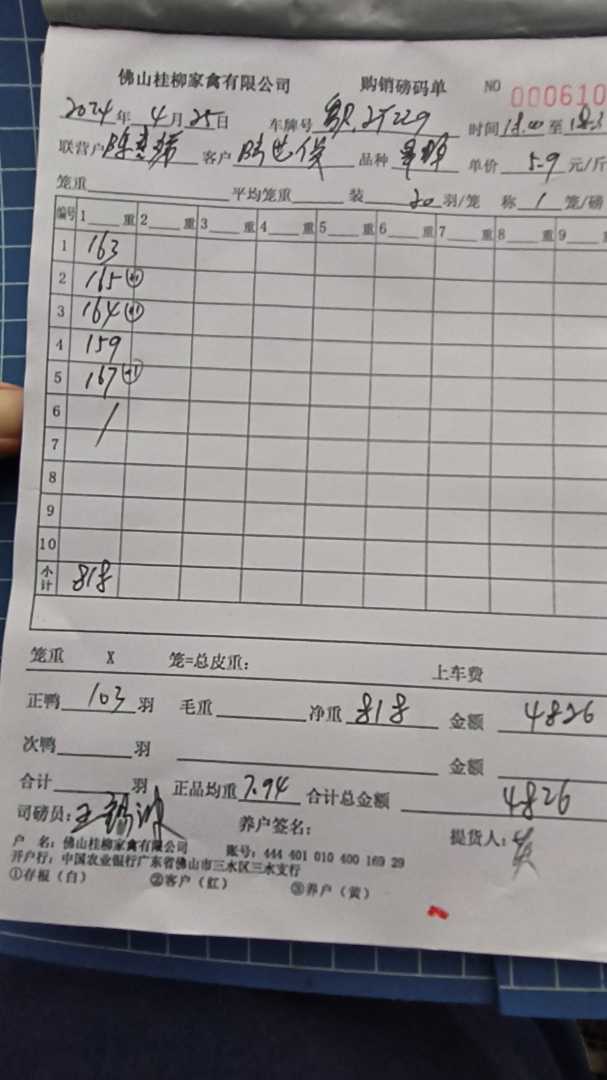 佛山桂柳家禽有限公司 购销磅码单 NO 000610
2024年4月25日 车牌号 2T229 时间18:00至18:3
联营户 客户 品种 单价 5.9 元/斤
笼重 平均笼重 装 20 羽/笼 称 1 笼/磅
编号 1 重 2 重 3 重 4 重 5 重 6 重 7 重 8 重 9
1 163
2 165 (+1)
3 164 (+1)
4 159
5 167 (+1)
6 /
7
8
9
10
小计 818
笼重 X 笼=总皮重: 上车费
正鸭 103 羽 毛重 净重 818 金额 4826
次鸭 羽 金额
合计 羽 正品均重 7.94 合计总金额 4826
司磅员: 王 养户签名: 提货人:
户 名: 佛山桂柳家禽有限公司 账号: 444 401 010 400 169 29
开户行: 中国农业银行广东省佛山市三水区三水支行
①存根(白) ②客户(红) ③养户(黄)